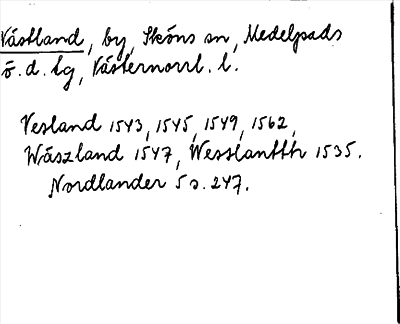 Västland, by, Sköns sn, Medelpads
ö. d. tg, Västernorrl. l.
Vesland 1543, 1545, 1549, 1562,
Wäszland 1547, Wesslantth 1535.
Nordlander 5 s. 247.